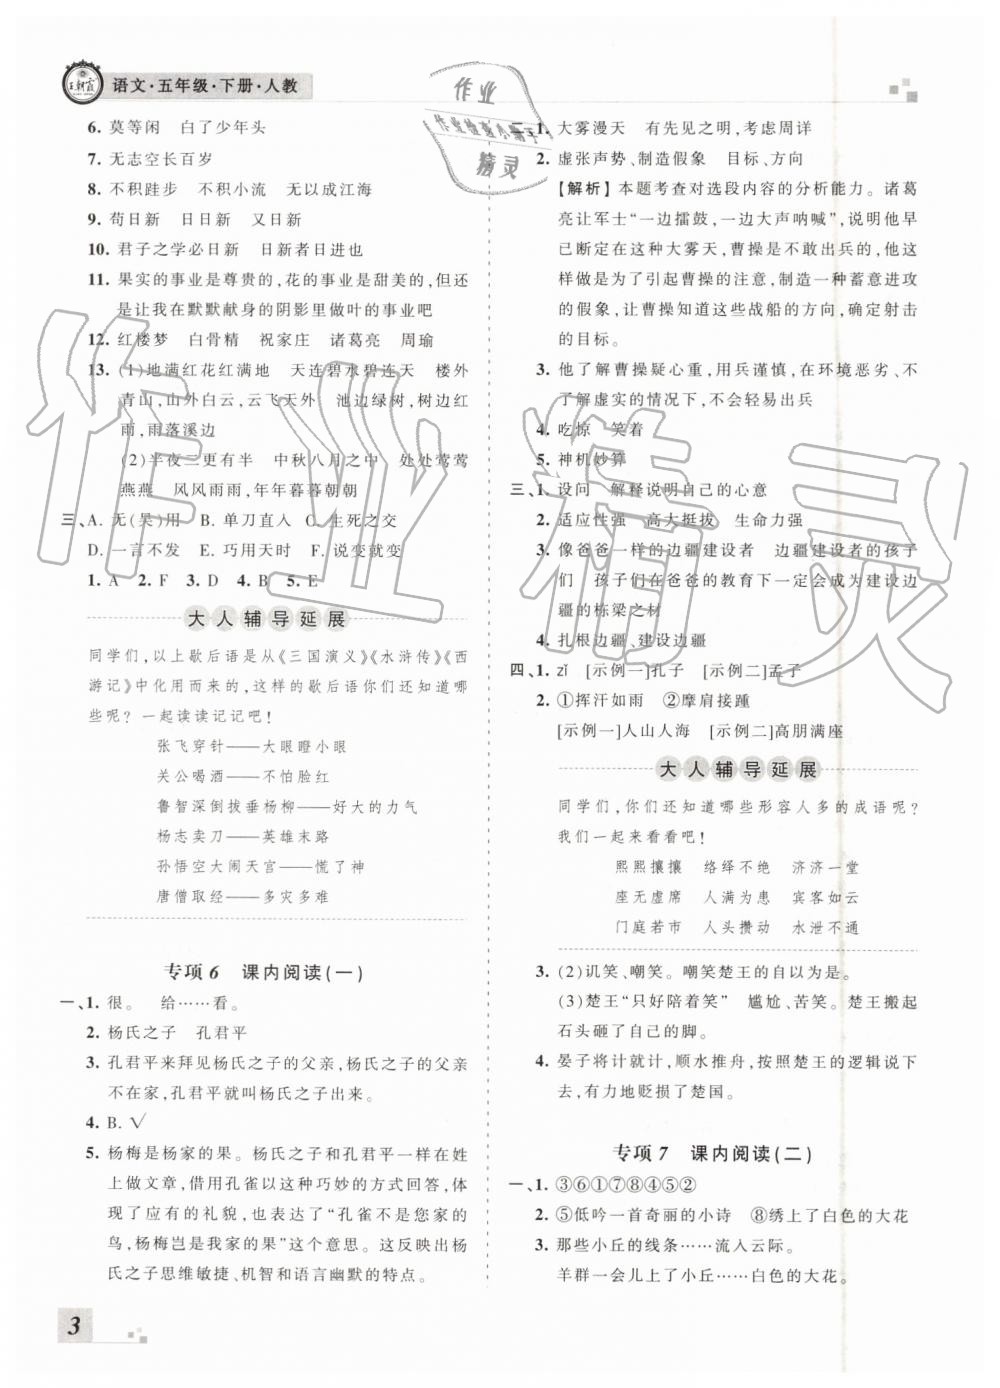 王朝霞
语文·五年级·下册·人教
6. 莫等闲 白了少年头
7. 无志空长百岁
8. 不积跬步 不积小流 无以成江海
9. 苟日新 日日新 又日新
10. 君子之学必日新 日新者日进也
11. 果实的事业是尊贵的,花的事业是甜美的,但还
是让我在默默献身的阴影里做叶的事业吧
12. 红楼梦 白骨精 祝家庄 诸葛亮 周瑜
13. (1)地满红花红满地 天连碧水碧连天 楼外
青山,山外白云,云飞天外 池边绿树,树边红
雨,雨落溪边
(2)半夜二更有半 中秋八月之中 处处莺莺
燕燕 风风雨雨,年年暮暮朝朝
三、A. 无(吴)用 B. 单刀直入 C. 生死之交
D. 一言不发 E. 巧用天时 F. 说变就变
1. A 2. F 3. D 4. B 5. E
大人辅导延展
同学们,以上歇后语是从《三国演义》《水浒传》《西
游记》中化用而来的,这样的歇后语你们还知道哪
些呢?一起读读记记吧!
张飞穿针——大眼瞪小眼
关公喝酒——不怕脸红
鲁智深倒拔垂杨柳——好大的力气
杨志卖刀——英雄末路
孙悟空大闹天宫——慌了神
唐僧取经——多灾多难
专项6 课内阅读(一)
一、1. 很。 给……看。
2. 杨氏之子 孔君平
3. 孔君平来拜见杨氏之子的父亲,杨氏之子的父亲
不在家,孔君平就叫杨氏之子出来。
4. B. √
5. 杨梅是杨家的果。杨氏之子和孔君平一样在姓
上做文章,借用孔雀以这种巧妙的方式回答,体
现了应有的礼貌,又表达了“孔雀不是您家的
鸟,杨梅岂是我家的果”这个意思。这反映出杨
氏之子思维敏捷、机智和语言幽默的特点。
3
作业
作业检查小帮手
精灵
二、1. 大雾漫天 有先见之明,考虑周详
2. 虚张声势、制造假象 目标、方向
【解析】本题考查对选段内容的分析能力。诸葛
亮让军士“一边擂鼓,一边大声呐喊”,说明他早
已断定在这种大雾天,曹操是不敢出兵的。他这
样做是为了引起曹操的注意,制造一种蓄意进攻
的假象,让曹操知道这些战船的方向,确定射击
的目标。
3. 他了解曹操疑心重,用兵谨慎,在环境恶劣、不
了解虚实的情况下,不会轻易出兵
4. 吃惊 笑着
5. 神机妙算
三、1. 设问 解释说明自己的心意
2. 适应性强 高大挺拔 生命力强
3. 像爸爸一样的边疆建设者 边疆建设者的孩子
们 孩子们在爸爸的教育下一定会成为建设边
疆的栋梁之材
4. 扎根边疆、建设边疆
四、1. zǐ [示例一]孔子 [示例二]孟子
2. ①挥汗如雨 ②摩肩接踵
[示例一]人山人海 [示例二]高朋满座
大人辅导延展
同学们,你们还知道哪些形容人多的成语呢?
我们一起来看看吧!
熙熙攘攘 络绎不绝 济济一堂
座无虚席 人满为患 宾客如云
门庭若市 人头攒动 水泄不通
3. (2)讥笑、嘲笑。嘲笑楚王的自以为是。
(3)楚王“只好陪着笑” 尴尬、苦笑。楚王搬起
石头砸了自己的脚。
4. 晏子将计就计,顺水推舟,按照楚王的逻辑说下
去,有力地贬损了楚国。
专项7 课内阅读(二)
一、1. ③⑥①⑦⑧④⑤②
2. ⑤低吟一首奇丽的小诗 ⑧绣上了白色的大花
3. 那些小丘的线条……流入云际。
羊群一会儿上了小丘……白色的大花。
作业精灵